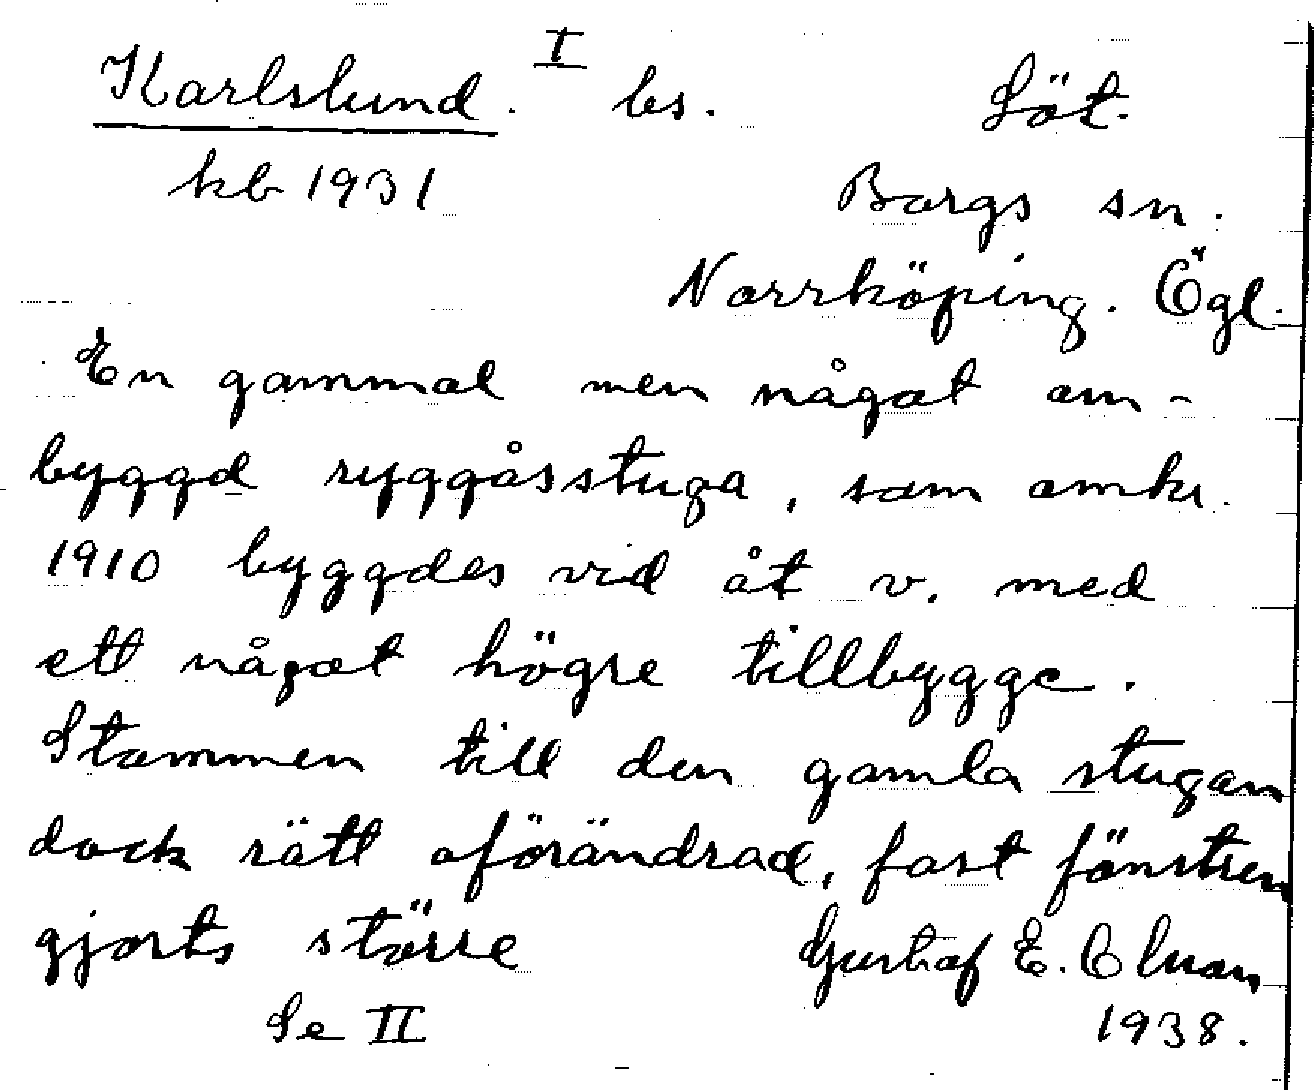 Karlslund. I bs. Söt.
kb 1931 Borgs sn.
Norrköping. Ögl.
En gammal men något om-
byggd ryggåsstuga, som omkr.
1910 byggdes vid åt v. med
ett något högre tillbygge.
Stommen till den gamla stugan
dock rätt oförändrad, fast fönstren
gjorts större Gustaf E. Olman
Se II 1938.